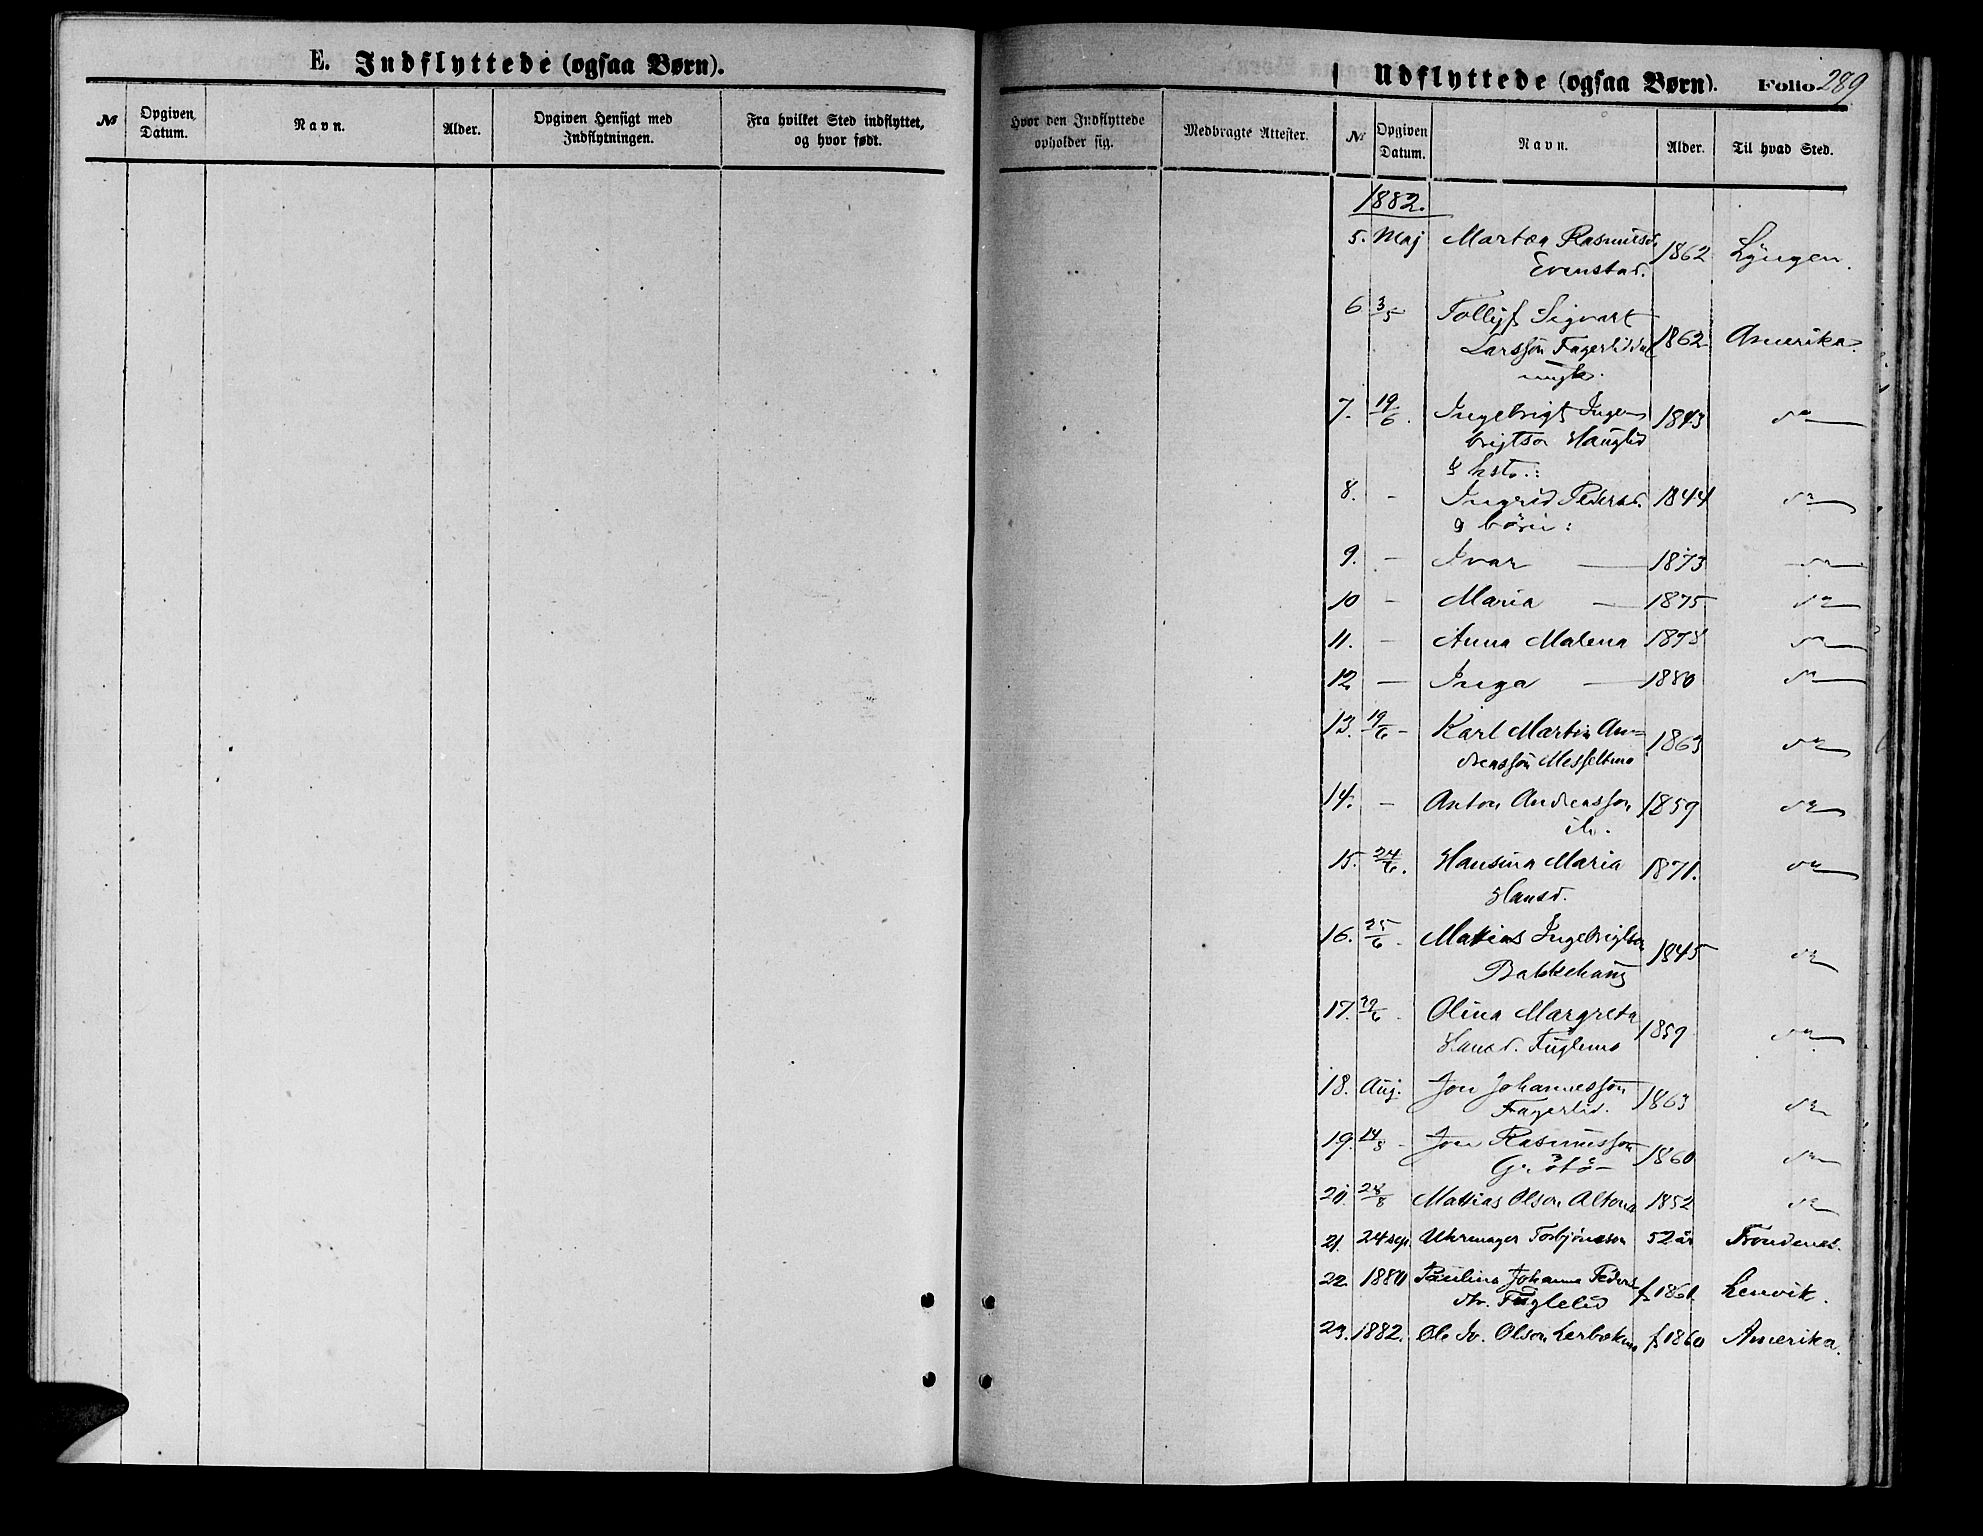 E. Indflyttede (ogsaa Børn).
№ Opgiven Datum. Navn. Alder. Opgiven Hensigt med Indflytningen. Fra hvilket Sted indflyttet, og hvor født.
Udflyttede (ogsaa Børn). Folio 289
Hvor den Indflyttede opholder sig. Medbragte Attester. № Opgiven Datum. Navn. Alder. Til hvad Sted.
1882.
5. Maj Martea Rasmusd. 1862 Lyngen.
Evenstad.
6 3/5 Tollef Sigvart
Larssøn 1862 Amerika.
ungk.
7. 19/6. Ingebrigt Inge- 1843 do
brigtsøn Hauglid
& hst.:
8. - Ingrid Pedersd. 1844 do
9 børn:
9. - Ivar — 1873 do
10 - Maria — 1875 do
11. - Anna Malena 1878 do
12 — Inga — 1880 do
13. 19/6 - Karl Martin An- 1863 do
dreassøn Messeltmo
14. - Anton Andreassøn 1859 do
ib.
15. 24/6. Hansina Maria 1871. do
Hansd.
16. 25/6. Matias Ingebrigtsøn 1845 do
Bakkehaug
17. 29/6. Olina Margreta 1859 do
Hansd. Fuglemo
18. Aug. Jon Johannessøn 1863 do
Fagerlid.
19. 14/8 - Jon Rasmussøn 1860 do
20. 28/8 Mattias Olsen Altona 1852 do
21. 24 sep. Uhrmager Torbjørnson 52 år Trondenes.
22 1880 Paulina Johanna Peders f. 1861. Lenvik.
dtr. Fuglelid
23. 1882. Ole Olson f. 1860 Amerika.